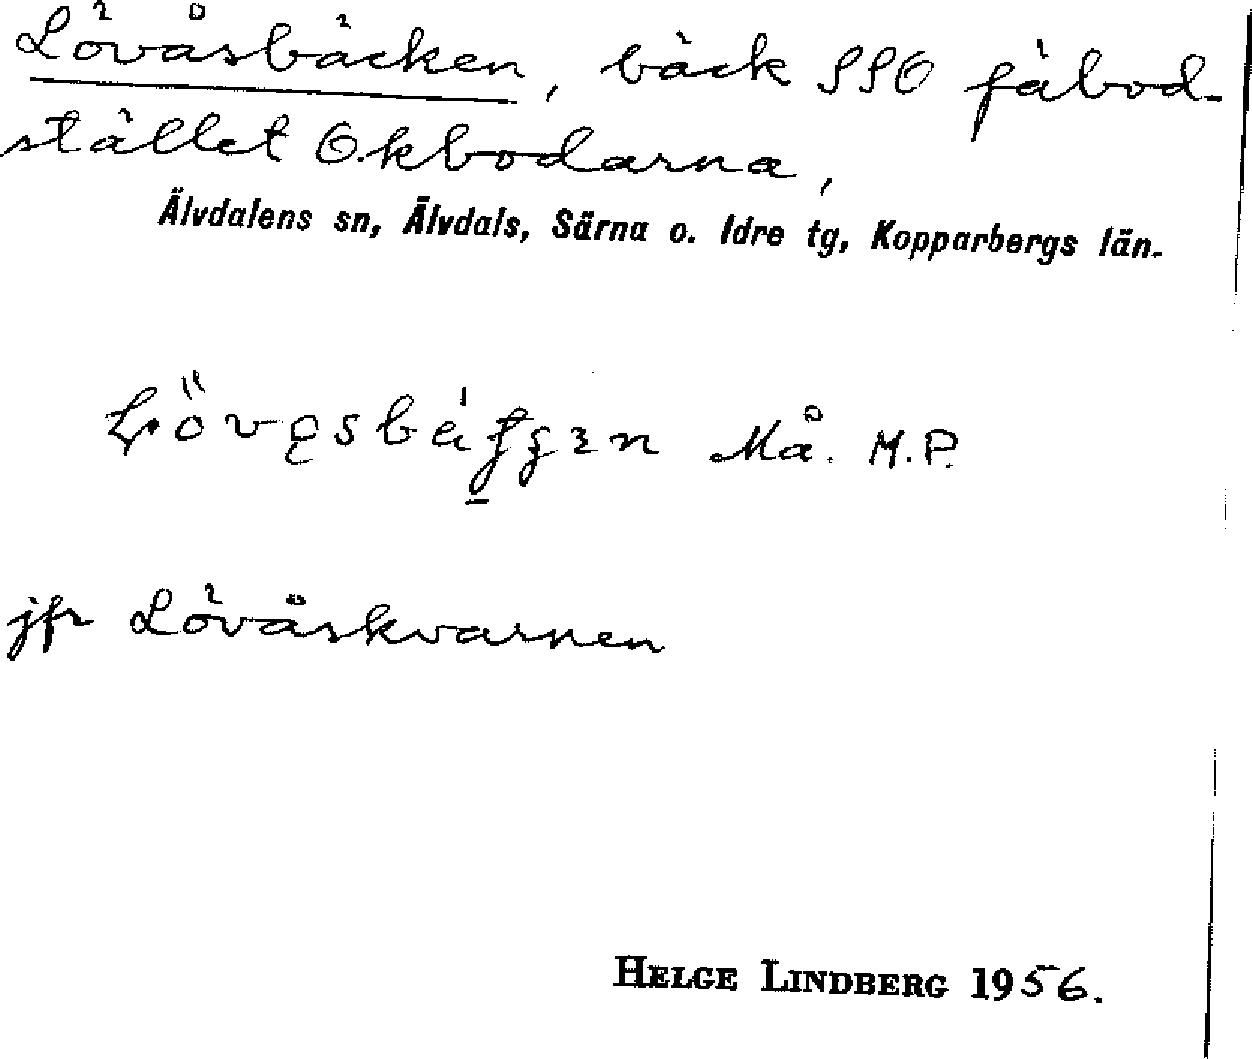 Lövåsbäcken, bäck SSO fäbod-
stället Okbodarna,
Älvdalens sn, Älvdals, Särna o. Idre tg, Kopparbergs län.
Må. M.P.
jfr Lövåskvarnen
HELGE LINDBERG 1956.